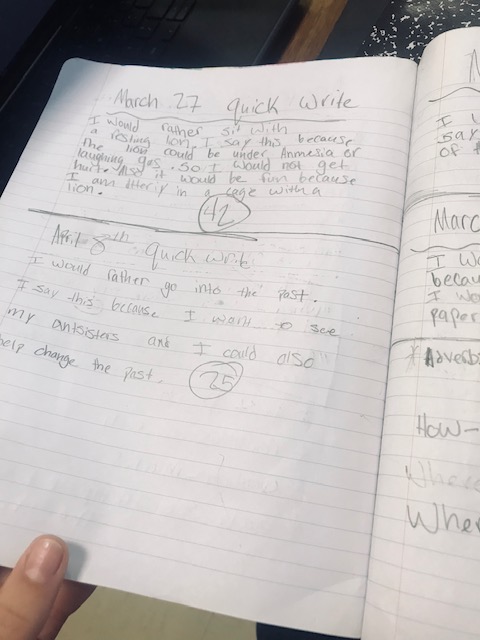 March 27 quick write
I would rather sit with
a resting lion. I say this because
the lion could be under Anmesia or
laughing gas. So I would not get
hurt. Also it would be fun because
I am litterly in a cage with a
lion.
42
April 8th quick write
I would rather go into the past.
I say this because I want to see
my antsisters and I could also
help change the past.
25
I
say
of
Marc
I wo
becau
I wo
paper
*Adverbs
How-
Where
Wher